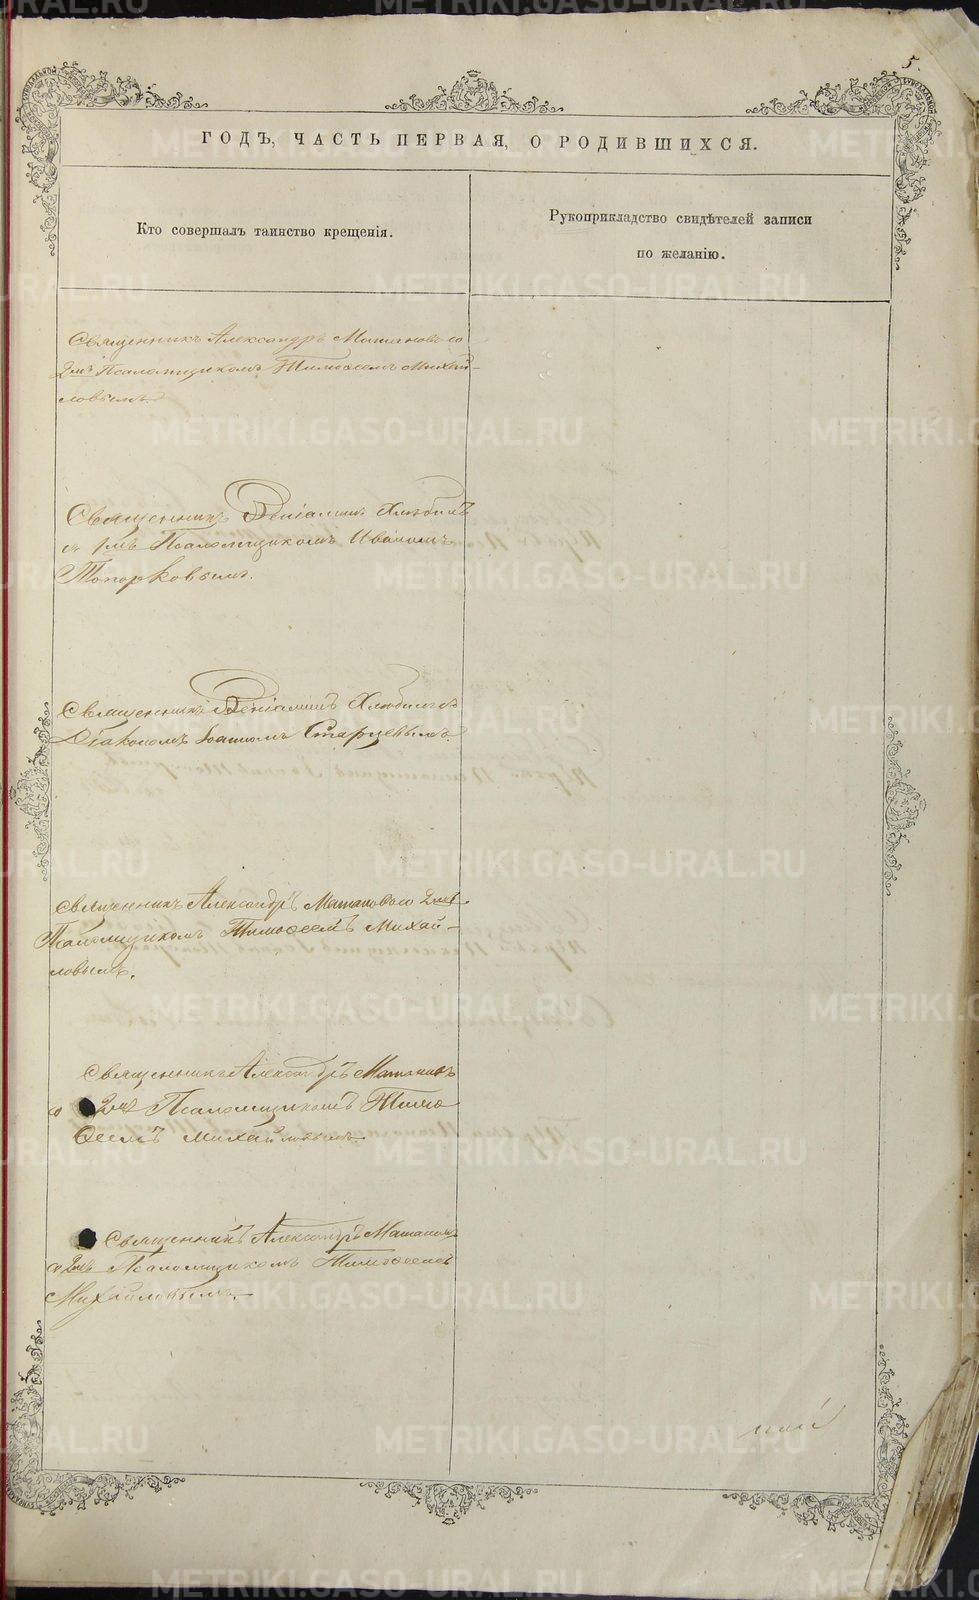 5.
ГОДЪ, ЧАСТЬ ПЕРВАЯ, О РОДИВШИХСЯ.
Кто совершалъ таинство крещенія.
Рукоприкладство свидѣтелей записи
по желанію.
Священникъ Александръ
2мъ Псаломщикомъ Тимоѳеемъ Михай-
ловымъ.
Священникъ Веніаминъ Хлюбинъ
съ 1мъ Псаломщикомъ Иваномъ
Топорковымъ.
Священникъ Веніаминъ Хлюбинъ съ
Діакономъ Іоанномъ Старцевымъ.
Священникъ Александръ 2мъ
Псаломщикомъ Тимоѳеемъ Михай-
ловымъ.
Священникъ Александръ
съ 2мъ Псаломщикомъ Тимо
ѳеемъ Михайловымъ
Священникъ Александръ
съ 2мъ Псаломщикомъ Тимоѳеемъ
Михайловымъ.
METRIKI.GASO-URAL.RU